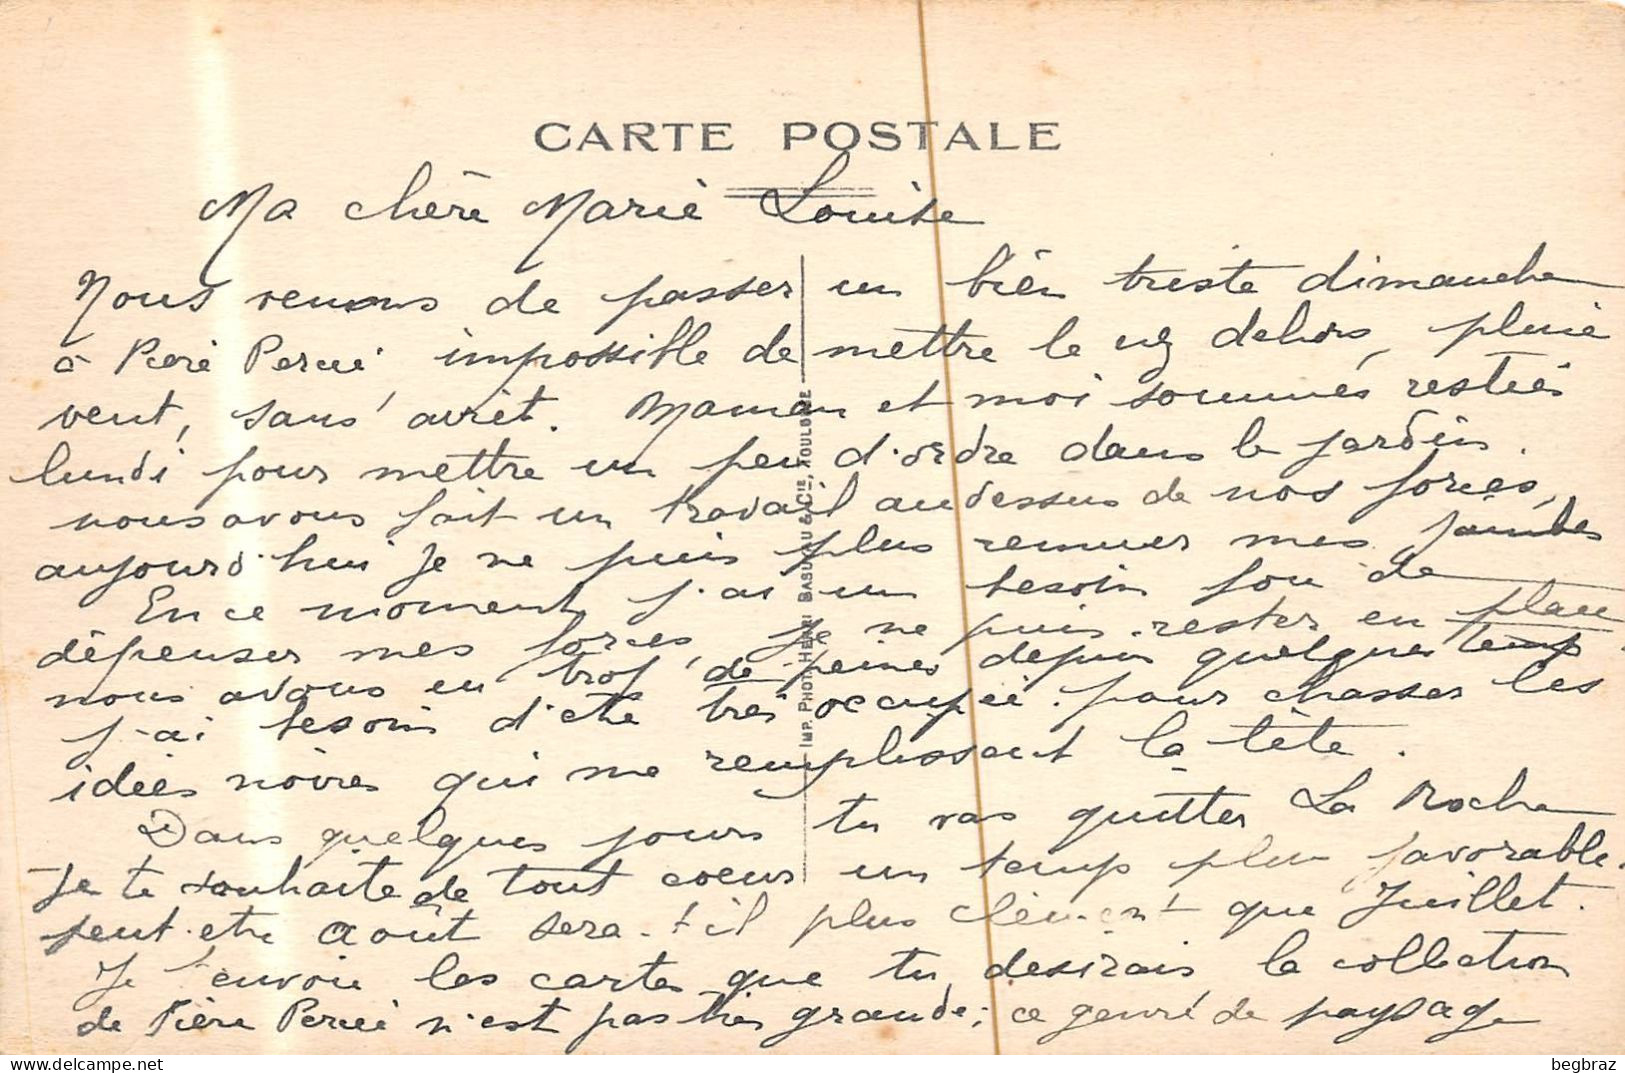 CARTE POSTALE
Ma chère Marie Louise
Nous venons de passer un bien triste dimanche
à Pierre Percée impossible de mettre le nez dehors, pluie
vent, sans arrêt. Maman et moi sommes restées
lundi pour mettre un peu d'ordre dans le jardin.
nous avons fait un travail au dessus de nos forces,
aujourd'hui je ne puis plus remuer mes jambes
En ce moment j'ai un besoin fou de
dépenser mes forces, je ne puis rester en place
nous avons eu trop de peines depuis quelques temps
j'ai besoin d'être très occupée pour chasser les
idées noires qui me remplissent la tête.
Dans quelques jours tu vas quitter La Roche
Je te souhaite de tout coeur un temps plus favorable.
peut-etre Août sera-t-il plus clément que Juillet.
Je t'envoie les cartes que tu desirais, la collection
de Pierre Percée n'est pas très grande; ce genre de paysage
IMP. PHOT. HENRI BASUYAU & Cie, TOULOUSE
begbraz